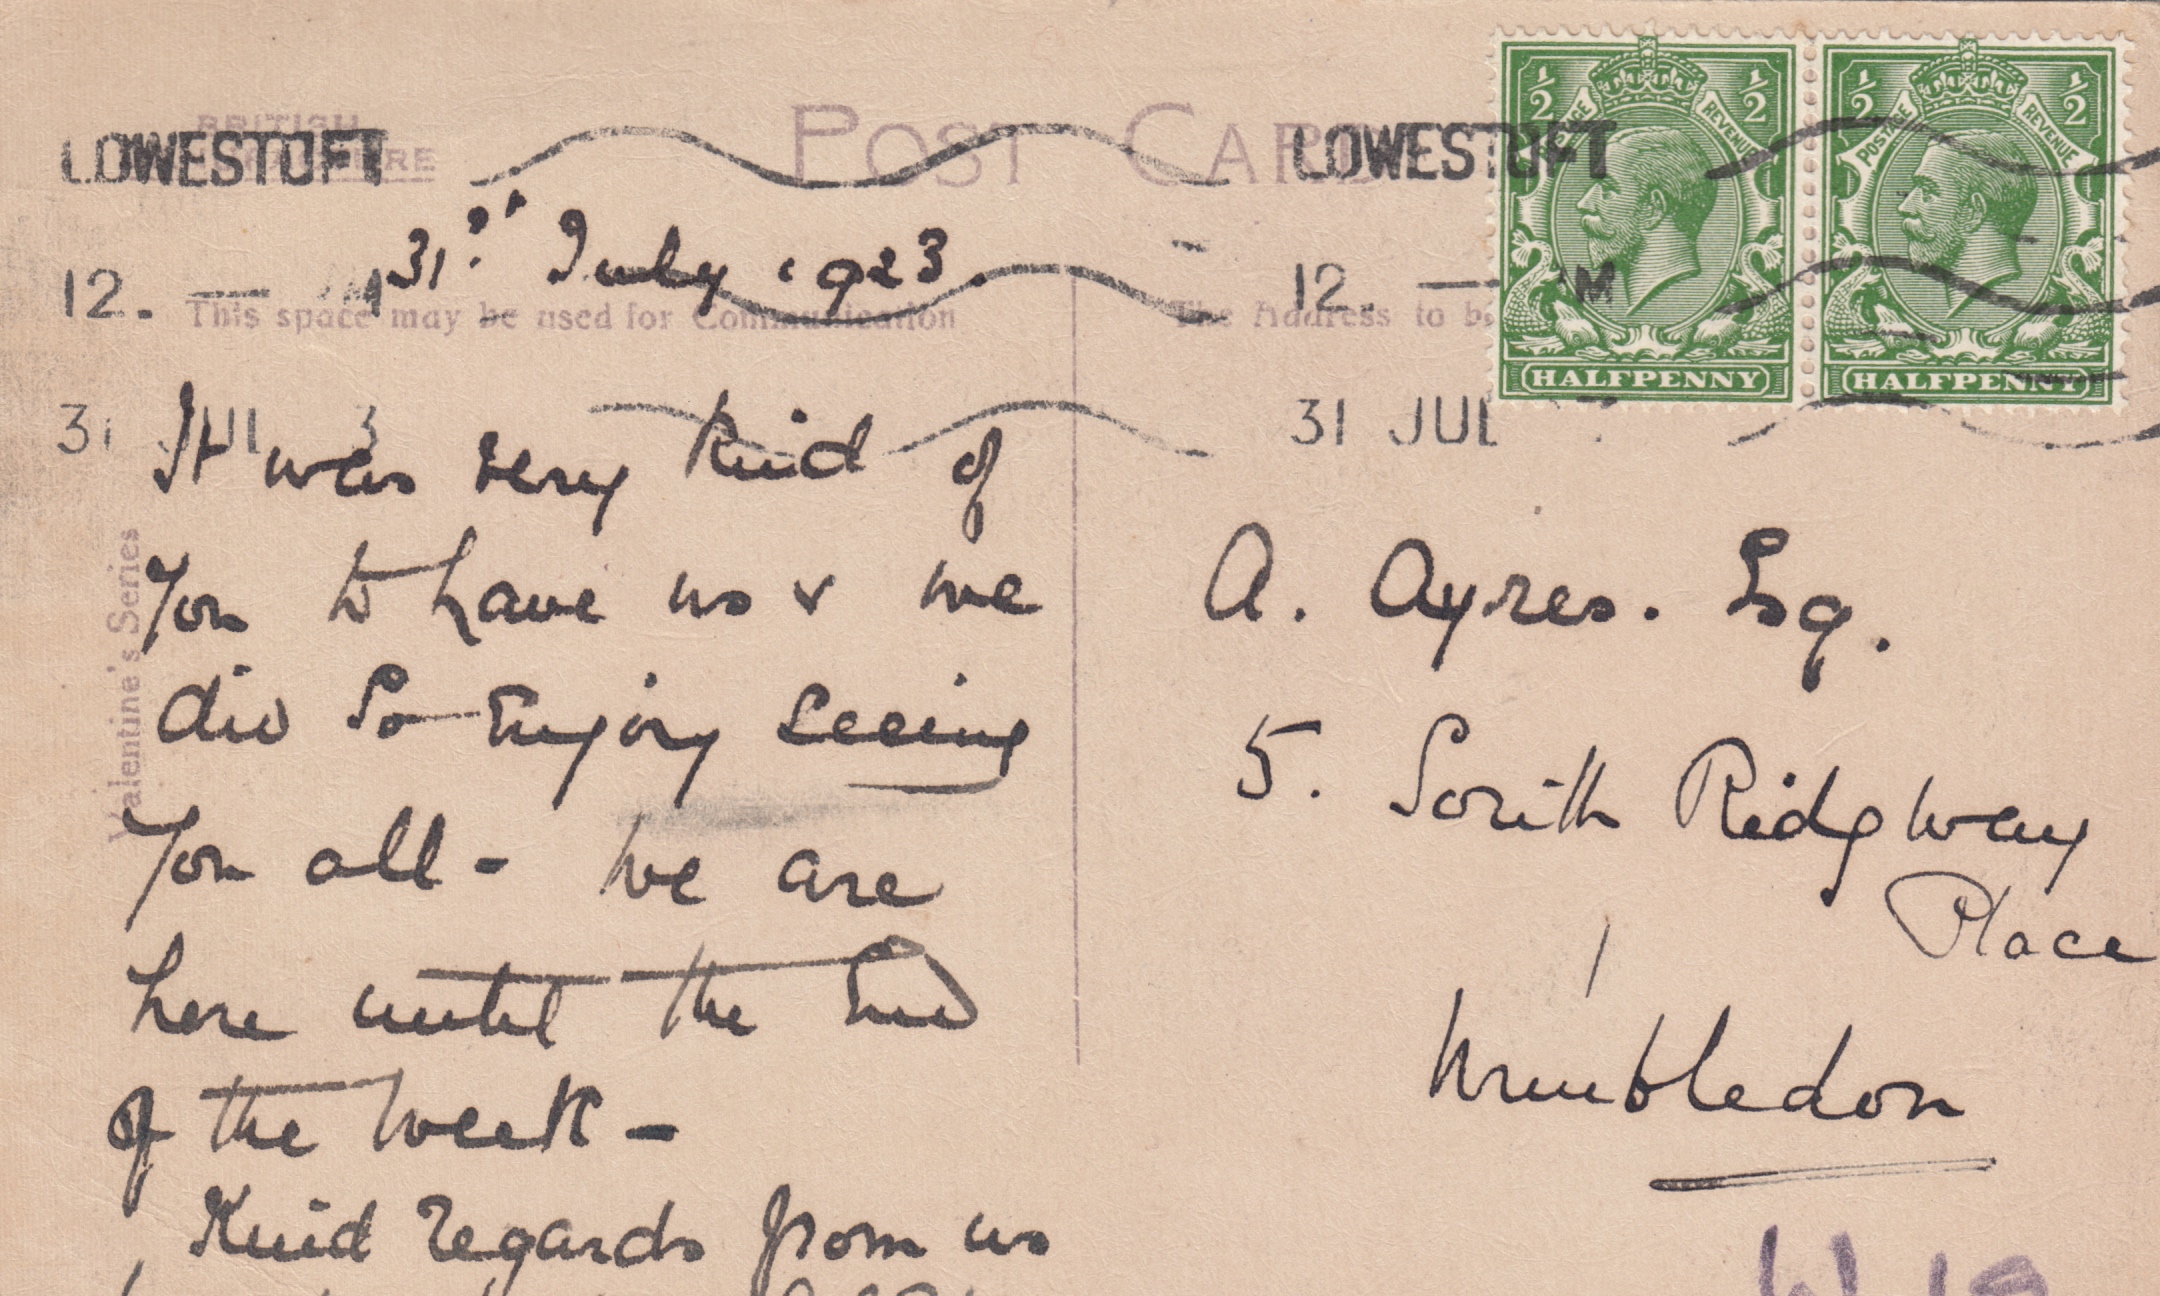 BRITISH
POST CARD
LOWESTOFT
LOWESTOFT
12. — M
12. — M
31 JUL 3
31 JUL
31st July 1923.
This space may be used for Communication
The Address to b
Valentine's Series
It was very kind of
you to have us & we
did so enjoy seeing
you all - We are
here until the End
of the week -
Kind regards from us
A. Ayres. Esq.
5. South Ridgway
Place
Wimbledon
1/2 1/2
POSTAGE REVENUE
HALFPENNY
1/2 1/2
POSTAGE REVENUE
HALFPENNY